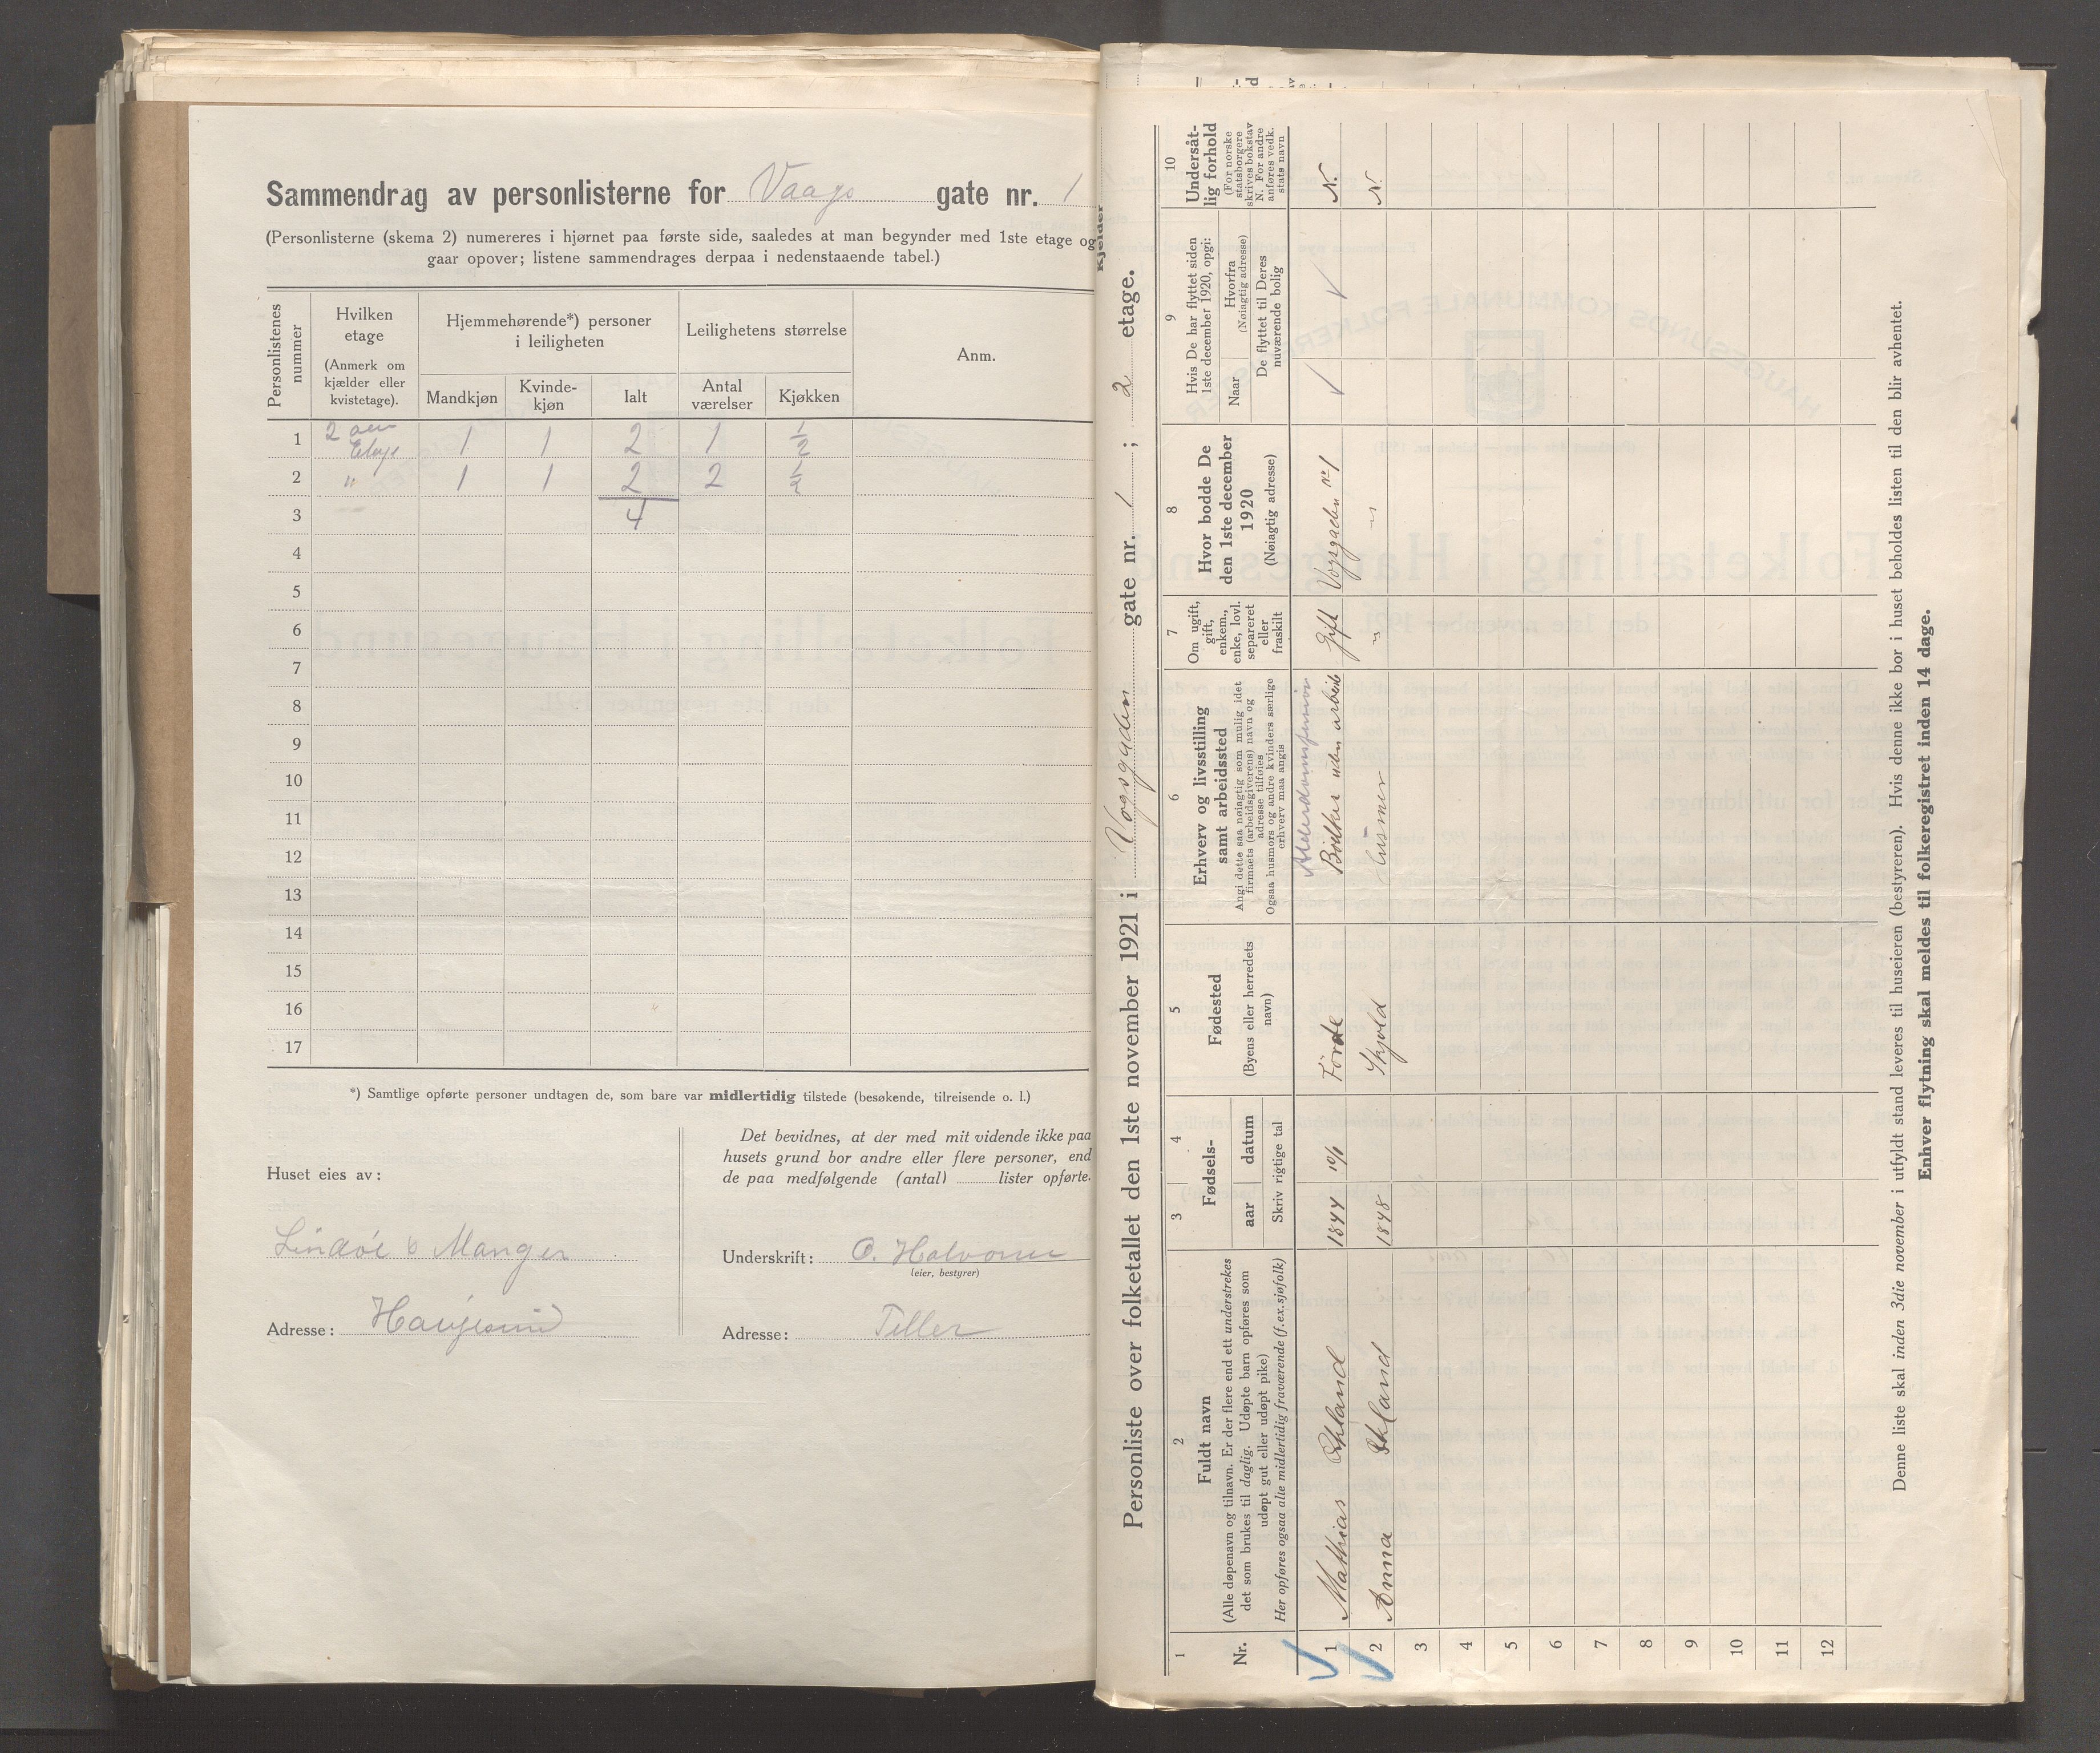 Sammendrag av personlisterne for Vaags gate nr. 1
(Personlisterne (skema 2) numereres i hjørnet paa første side, saaledes at man begynder med 1ste etage og
gaar opover; listene sammendrages derpaa i nedenstaaende tabel.)
Personlistenes nummer
Hvilken etage (Anmerk om kjælder eller kvistetage).
Hjemmehørende*) personer i leiligheten
Leilighetens størrelse
Anm.
Mandkjøn Kvinde-kjøn Ialt Antal værelser Kjøkken
1 2 Etage 1 1 2 1 1/2
2 " 1 1 2 2 1/2
3 4
4
5
6
7
8
9
10
11
12
13
14
15
16
17
*) Samtlige opførte personer undtagen de, som bare var midlertidig tilstede (besøkende, tilreisende o. l.)
Huset eies av:
Lindøe & Manger
Adresse: Haugesund
Det bevidnes, at der med mit vidende ikke paa
husets grund bor andre eller flere personer, end
de paa medfølgende (antal) lister opførte.
Underskrift: O. Halvorsen
(eier, bestyrer)
Adresse: Teller
Kjelder
Personliste over folketallet den 1ste november 1921 i Vogsgaden gate nr. 1; 2 etage.
1 2 3 4 5 6 7 8 9 10
Nr.
Fuldt navn
(Alle døpenavn og tilnavn. Er der flere end ett understrekes
det som brukes til daglig. Udøpte barn opføres som
udøpt gut eller udøpt pike)
Her opføres ogsaa alle midlertidig fraværende (f.ex. sjøfolk)
Fødsels-
aar datum
Skriv rigtige tal
Fødested
(Byens eller herredets
navn)
Erhverv og livsstilling
samt arbeidssted
Angi dette saa nøiagtig som mulig idet
firmaets (arbeidsgiverens) navn og
adresse tilføies
Ogsaa husmors og andre kvinders særlige
erhverv maa angis
Om ugift,
gift,
enkem.,
enke, lovl.
separeret
eller
fraskilt
Hvor bodde De
den 1ste december
1920
(Nøiagtig adresse)
Hvis De har flyttet siden
1ste december 1920, opgi:
Naar
Hvorfra
(Nøiagtig adresse)
De flyttet til Deres
nuværende bolig
Undersåt-
lig forhold
(For norske
statsborgere
skrives bokstav
N. For andre
anføres vedk.
stats navn
Alderdomsforsørg
1 Mathias Økland 1844 10/1 Førde Bødker uden arbeide Gift Vogsgaden No 1 N.
2 Anna Økland 1848 Skjold husmor " " N.
3
4
5
6
7
8
9
10
11
12
Denne liste skal inden 3die november i utfyldt stand leveres til huseieren (bestyreren). Hvis denne ikke bor i huset beholdes listen til den blir avhentet.
Enhver flytning skal meldes til folkeregistret inden 14 dage.